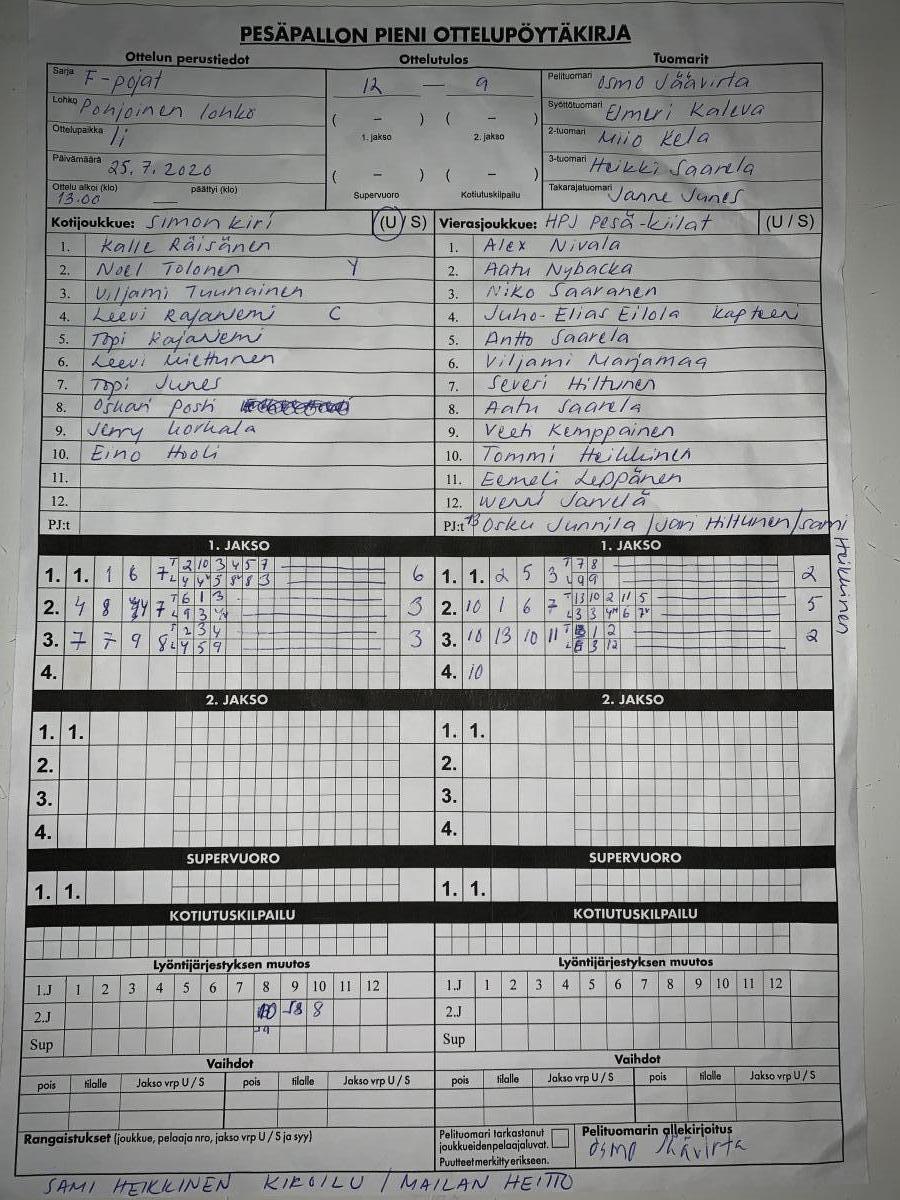 PESÄPALLON PIENI OTTELUPÖYTÄKIRJA
Ottelun perustiedot Ottelutulos Tuomarit
Sarja F-pojat 12 — 9 Pelituomari Osmo Jäävirta
Lohko Pohjoinen lohko ( – ) ( – ) Syöttötuomari Elmeri Kaleva
Ottelupaikka Ii 1. jakso 2. jakso 2-tuomari Miio Kela
Päivämäärä 25.7.2020 ( – ) ( – ) 3-tuomari Heikki Saarela
Ottelu alkoi (klo) 13.00 päättyi (klo) — Supervuoro Kotiutuskilpailu Takarajatuomari Janne Junes
Kotijoukkue: Simon kiri (U / S) Vierasjoukkue: HPJ Pesä-kiilat (U / S)
1. Kalle Räisänen 1. Alex Nivala
2. Noel Tolonen Y 2. Aatu Nybacka
3. Viljami Tuunainen 3. Niko Saaranen
4. Leevi Rajaniemi C 4. Juho-Elias Eilola kapteeni
5. Topi Rajaniemi 5. Antto Saarela
6. Leevi Miettunen 6. Viljami Marjamaa
7. Topi Junes 7. Severi Hiltunen
8. Oskari Posti 8. Aatu Saarela
9. Jerry Korkala 9. Veeti Kemppainen
10. Eino Hooli 10. Tommi Heikkinen
11. 11. Eemeli Leppänen
12. 12. Wenni Jarvelä
PJ:t PJ:t 13 Osku Junnila / Jari Hiltunen / Sami Heikkinen
1. JAKSO 1. JAKSO
1. 1. 1 6 7 T 2 10 3 4 5 7 6 1. 1. 2 5 3 T 7 8 2
L 4 4 5 8 8 3 L 9 9
2. 4 8 7 T 6 1 3 3 2. 10 1 6 7 T 13 10 2 11 5 5
L 9 3 L 3 3 4 6 7
3. 7 7 9 8 T 2 3 4 3 3. 10 13 10 11 T 1 2 2
L 4 5 9 L 3 12
4. 4. 10
2. JAKSO 2. JAKSO
1. 1. 1. 1.
2. 2.
3. 3.
4. 4.
SUPERVUORO SUPERVUORO
1. 1. 1. 1.
KOTIUTUSKILPAILU KOTIUTUSKILPAILU
Lyöntijärjestyksen muutos Lyöntijärjestyksen muutos
1.J 1 2 3 4 5 6 7 8 9 10 11 12 1.J 1 2 3 4 5 6 7 8 9 10 11 12
2.J 10 8 2.J
Sup Sup
Vaihdot Vaihdot
pois tilalle Jakso vrp U / S pois tilalle Jakso vrp U / S pois tilalle Jakso vrp U / S pois tilalle Jakso vrp U / S
Rangaistukset (joukkue, pelaaja nro, jakso vrp U / S ja syy) Pelituomari tarkastanut joukkueidenpelaajaluvat. Puutteet merkitty erikseen. Pelituomarin allekirjoitus
Osmo Jäävirta
SAMI HEIKKINEN KIROILU / MAILAN HEITTO